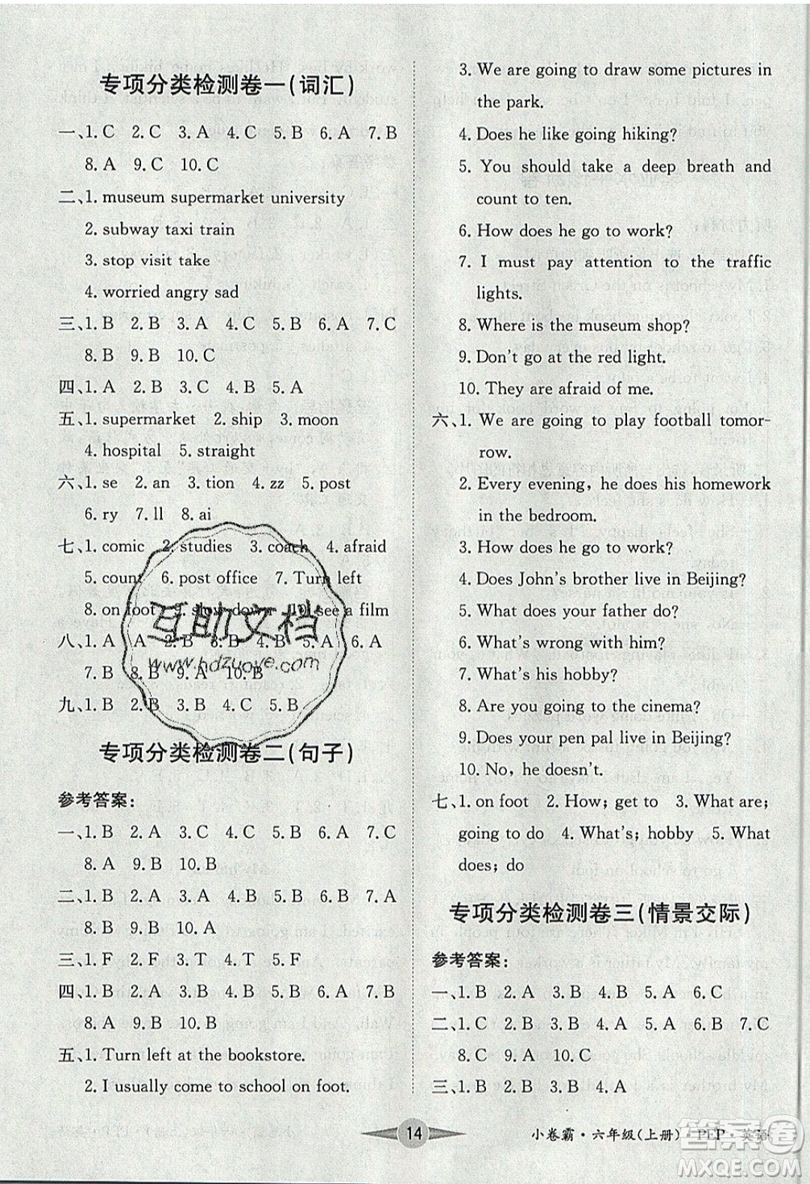 专项分类检测卷一(词汇)
一、1. C 2. C 3. A 4. C 5. B 6. A 7. B
8. A 9. C 10. C
二、1. museum supermarket university
2. subway taxi train
3. stop visit take
4. worried angry sad
三、1. B 2. B 3. A 4. C 5. B 6. A 7. B
8. B 9. C 10. C
四、1. A 2. A 3. B 4. C 5. B
五、1. supermarket 2. ship 3. moon
4. hospital 5. straight
六、1. se 2. an 3. tion 4. zz 5. post
6. ry 7. ll 8. ai
七、1. comic 2. studies 3. coach 4. afraid
5. count 6. post office 7. Turn left
8. on foot 9. slow down 10. see a film
八、1. A 2. A 3. B 4. A 5. A 6. A
7. B 8. B 9. A 10. B
九、1. B 2. B
专项分类检测卷二(句子)
参考答案:
一、1. B 2. A 3. C 4. C 5. B 6. A 7. C
8. A 9. B 10. B
二、1. B 2. A 3. B 4. B 5. B 6. B 7. A
8. B 9. B 10. B
三、1. F 2. F 3. T 4. F 5. T
四、1. B 2. A 3. B 4. B 5. B 6. A 7. A
8. B 9. B 10. A
五、1. Turn left at the bookstore.
2. I usually come to school on foot.
3. We are going to draw some pictures in
the park.
4. Does he like going hiking?
5. You should take a deep breath and
count to ten.
6. How does he go to work?
7. I must pay attention to the traffic
lights.
8. Where is the museum shop?
9. Don't go at the red light.
10. They are afraid of me.
六、1. We are going to play football tomor-
row.
2. Every evening, he does his homework
in the bedroom.
3. How does he go to work?
4. Does John's brother live in Beijing?
5. What does your father do?
6. What's wrong with him?
7. What's his hobby?
8. Are you going to the cinema?
9. Does your pen pal live in Beijing?
10. No, he doesn't.
七、1. on foot 2. How; get to 3. What are;
going to do 4. What's; hobby 5. What
does; do
专项分类检测卷三(情景交际)
参考答案:
一、1. B 2. A 3. B 4. A 5. A 6. C
二、1. C 2. B 3. B 4. A 5. A 6. B 7. C
8. C 9. A 10. C
三、1. A 2. B 3. B 4. B 5. A
14
小卷霸·六年级(上册) PEP·英语
互助文档
www.hdzuoye.com
MXQE.COM